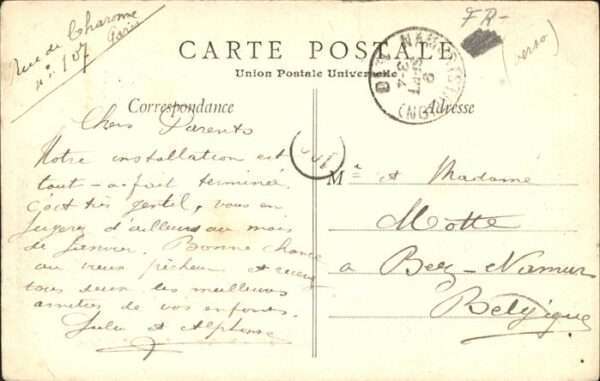 Rue de Charonne
n° 107 Paris
FR-
(verso)
CARTE POSTALE
Union Postale Universelle
Correspondance
Adresse
NAMUR (STATION)
Chers Parents
Notre installation est
tout-a-fait terminée
c'est très gentil, vous en
jugerez d'ailleurs au mois
de Janvier. Bonne chance
au vieux pêcheur et
tous deux les meilleures
amitiés de vos enfants.
Julia et Alphonse
M et Madame
Motte
a Bez-Namur
Belgique